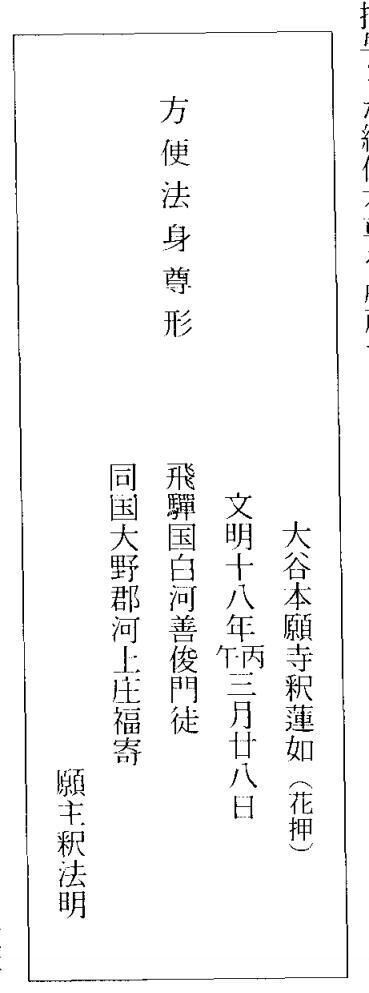 大谷本願寺釈蓮如(花押)
文明十八年丙午三月廿八日
方便法身尊形
飛驒国白河善俊門徒
同国大野郡河上庄福寄
願主釈法明